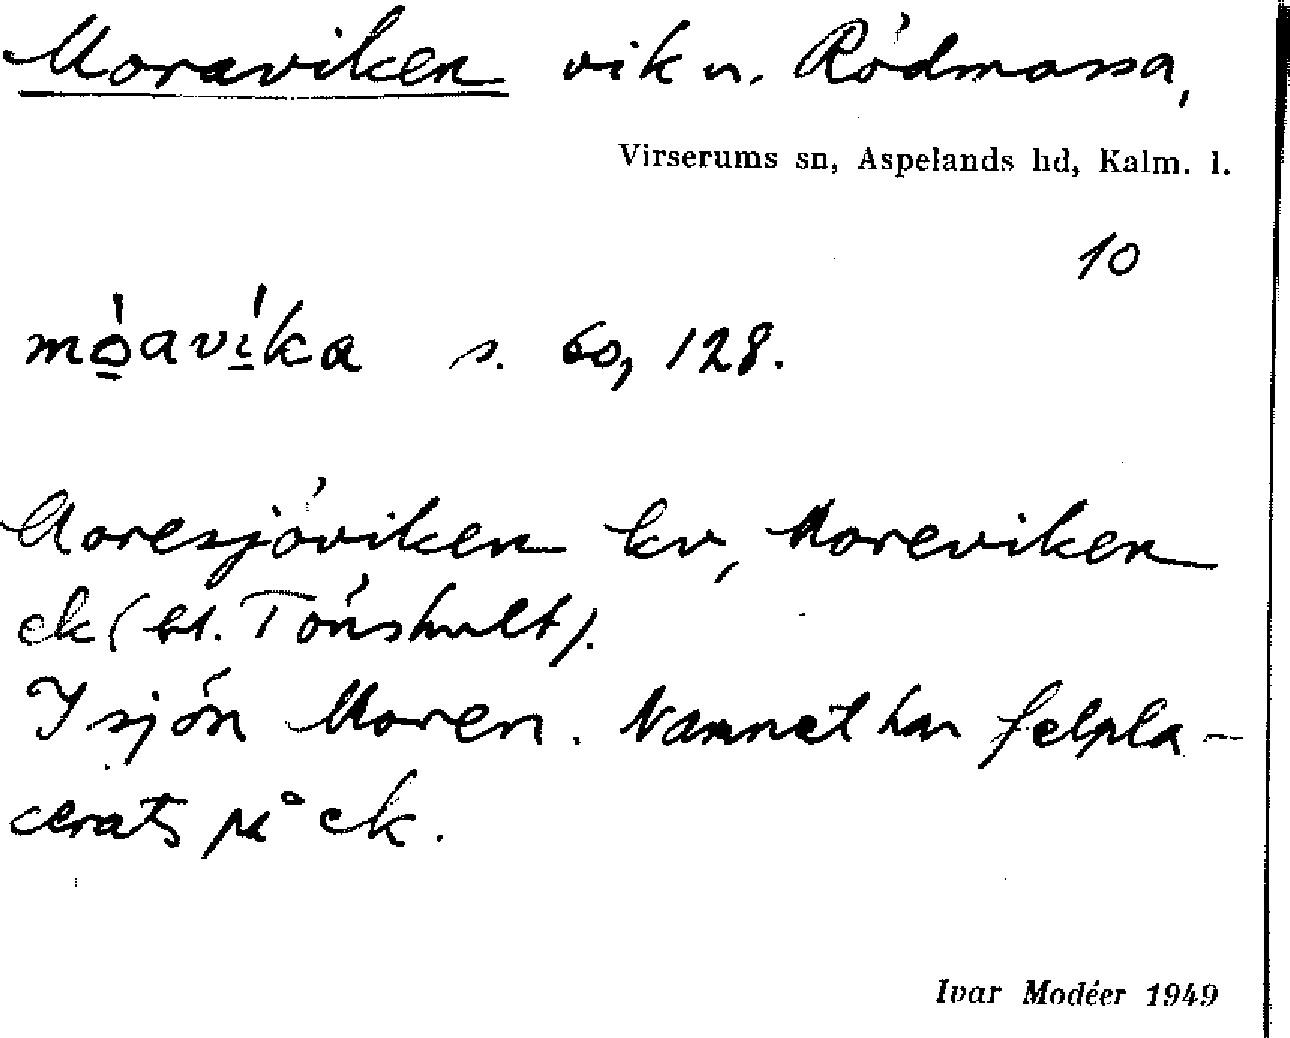 Moraviken vik u. Rödmossa,
Virserums sn, Aspelands hd, Kalm. l.
10
móavíka s. 60, 128.
Moresjöviken kv, Moreviken
ek (bl. Tönshult).
I sjön Moren. Namnet har felpla-
cerats på ek.
Ivar Modéer 1949